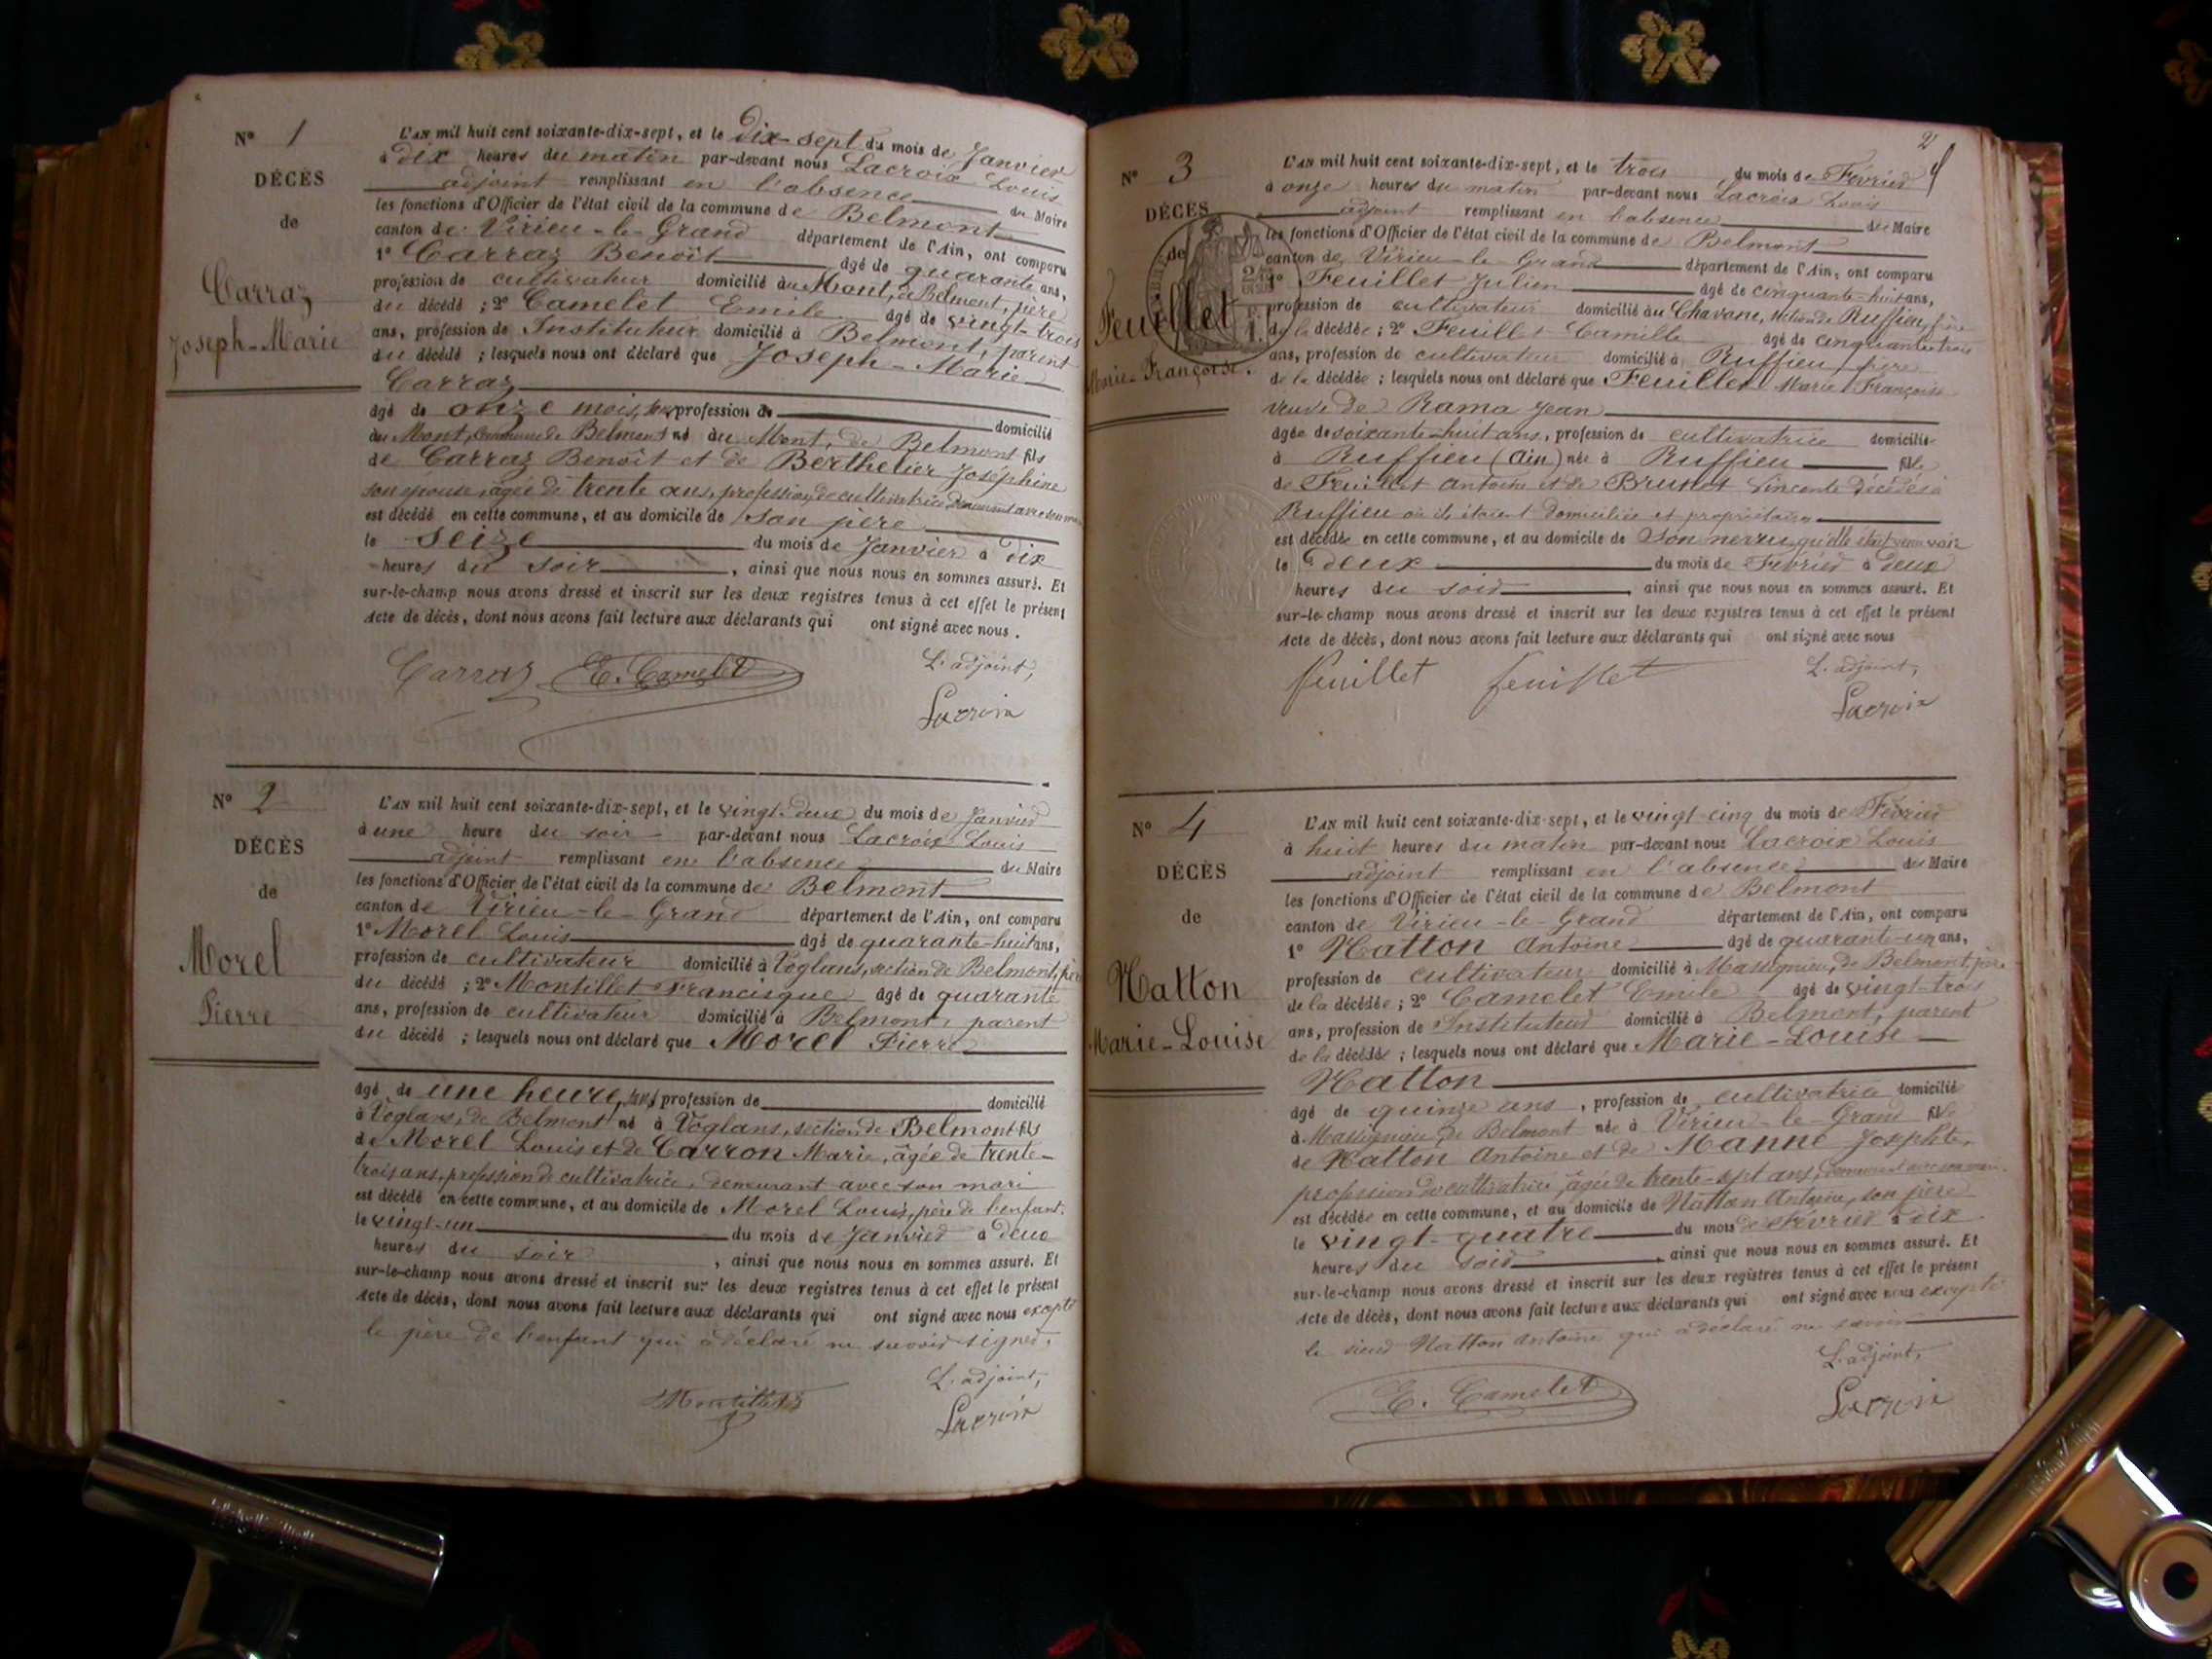 N° 1
DÉCÈS
de
Carraz
Joseph-Marie
L'AN mil huit cent soixante-dix-sept, et le dix sept du mois de Janvier
à dix heures du matin par-devant nous Lacroix Louis
adjoint remplissant en l'absence du Maire
les fonctions d'Officier de l'état civil de la commune de Belmont
canton de Virieu-le-Grand département de l'Ain, ont comparu
1° Carraz Benoît âgé de quarante ans,
profession de cultivateur domicilié au Mont, à Belmont, père
du décédé ; 2° Camelet Emile âgé de vingt-trois
ans, profession de Instituteur domicilié à Belmont, parent
du décédé ; lesquels nous ont déclaré que Joseph-Marie
Carraz
âgé de onze mois, profession de domicilié
au Mont, commune de Belmont né au Mont, de Belmont fils
de Carraz Benoit et de Berthelier Joséphine
son épouse, âgée de trente ans, profession de cultivatrice demeurant avec son mari
est décédé en cette commune, et au domicile de son père
le seize du mois de Janvier à dix
heures du soir, ainsi que nous nous en sommes assuré. Et
sur-le-champ nous avons dressé et inscrit sur les deux registres tenus à cet effet le présent
Acte de décès, dont nous avons fait lecture aux déclarants qui ont signé avec nous.
Carraz E. Camelet L'adjoint,
Lacroix
N° 2
DÉCÈS
de
Morel
Pierre
L'AN mil huit cent soixante-dix-sept, et le vingt-deux du mois de Janvier
à une heure du soir par-devant nous Lacroix Louis
adjoint remplissant en l'absence du Maire
les fonctions d'Officier de l'état civil de la commune de Belmont
canton de Virieu-le-Grand département de l'Ain, ont comparu
1° Morel Louis âgé de quarante-huit ans,
profession de cultivateur domicilié à Voglans, section de Belmont, père
du décédé ; 2° Montillet Francisque âgé de quarante
ans, profession de cultivateur domicilié à Belmont, parent
du décédé ; lesquels nous ont déclaré que Morel Pierre
âgé de une heure, profession de domicilié
à Voglans, de Belmont né à Voglans, section de Belmont fils
de Morel Louis et de Carron Marie, âgée de trente-
trois ans, profession de cultivatrice, demeurant avec son mari
est décédé en cette commune, et au domicile de Morel Louis, père de l'enfant.
le vingt-un du mois de Janvier à deux
heures du soir, ainsi que nous nous en sommes assuré. Et
sur-le-champ nous avons dressé et inscrit sur les deux registres tenus à cet effet le présent
Acte de décès, dont nous avons fait lecture aux déclarants qui ont signé avec nous excepté
le père de l'enfant qui a déclaré ne savoir signer.
L'adjoint,
Montillet
Lacroix
2
N° 3
DÉCÈS
de
Feuillet
Marie-Françoise.
L'AN mil huit cent soixante-dix-sept, et le trois du mois de Février
à onze heures du matin par-devant nous Lacroix Louis
adjoint remplissant en l'absence du Maire
les fonctions d'Officier de l'état civil de la commune de Belmont
canton de Virieu-le-Grand département de l'Ain, ont comparu
1° Feuillet Julien âgé de cinquante-huit ans,
profession de cultivateur domicilié au Chavane, section de Ruffieu, frère
de la décédée ; 2° Feuillet Camille âgé de cinquante trois
ans, profession de cultivateur domicilié à Ruffieu, frère
de la décédée ; lesquels nous ont déclaré que Feuillet Marie Françoise
veuve de Rama Jean
âgée de soixante-huit ans, profession de cultivatrice domiciliée
à Ruffieu (Ain) née à Ruffieu fille
de Feuillet Antoine et de Brunet Vincente décédés à
Ruffieu où ils étaient domiciliés et propriétaires
est décédée en cette commune, et au domicile de son neveu, qu'elle était venu voir
le deux du mois de Février à deux
heures du soir, ainsi que nous nous en sommes assuré. Et
sur-le-champ nous avons dressé et inscrit sur les deux registres tenus à cet effet le présent
Acte de décès, dont nous avons fait lecture aux déclarants qui ont signé avec nous
feuillet feuillet L'adjoint,
Lacroix
N° 4
DÉCÈS
de
Hatton
Marie-Louise
L'AN mil huit cent soixante-dix-sept, et le vingt-cinq du mois de Février
à huit heures du matin par-devant nous Lacroix Louis
adjoint remplissant en l'absence du Maire
les fonctions d'Officier de l'état civil de la commune de Belmont
canton de Virieu-le-Grand département de l'Ain, ont comparu
1° Hatton Antoine âgé de quarante-un ans,
profession de cultivateur domicilié à Massignieu, de Belmont, père
de la décédée ; 2° Camelet Emile âgé de vingt-trois
ans, profession de Instituteur domicilié à Belmont, parent
de la décédée ; lesquels nous ont déclaré que Marie-Louise
Hatton
âgé de quinze ans, profession de cultivatrice domicilié
à Massignieu, de Belmont née à Virieu-le-Grand fille
de Hatton Antoine et de Manne Josephte,
profession de cultivatrice, âgée de trente-sept ans, demeurant avec son mari.
est décédée en cette commune, et au domicile de Hatton Antoine, son père
le vingt-quatre du mois de Février à dix
heures du soir, ainsi que nous nous en sommes assuré. Et
sur-le-champ nous avons dressé et inscrit sur les deux registres tenus à cet effet le présent
Acte de décès, dont nous avons fait lecture aux déclarants qui ont signé avec nous excepté
le sieur Hatton Antoine qui a déclaré ne savoir
L'adjoint,
E. Camelet
Lacroix